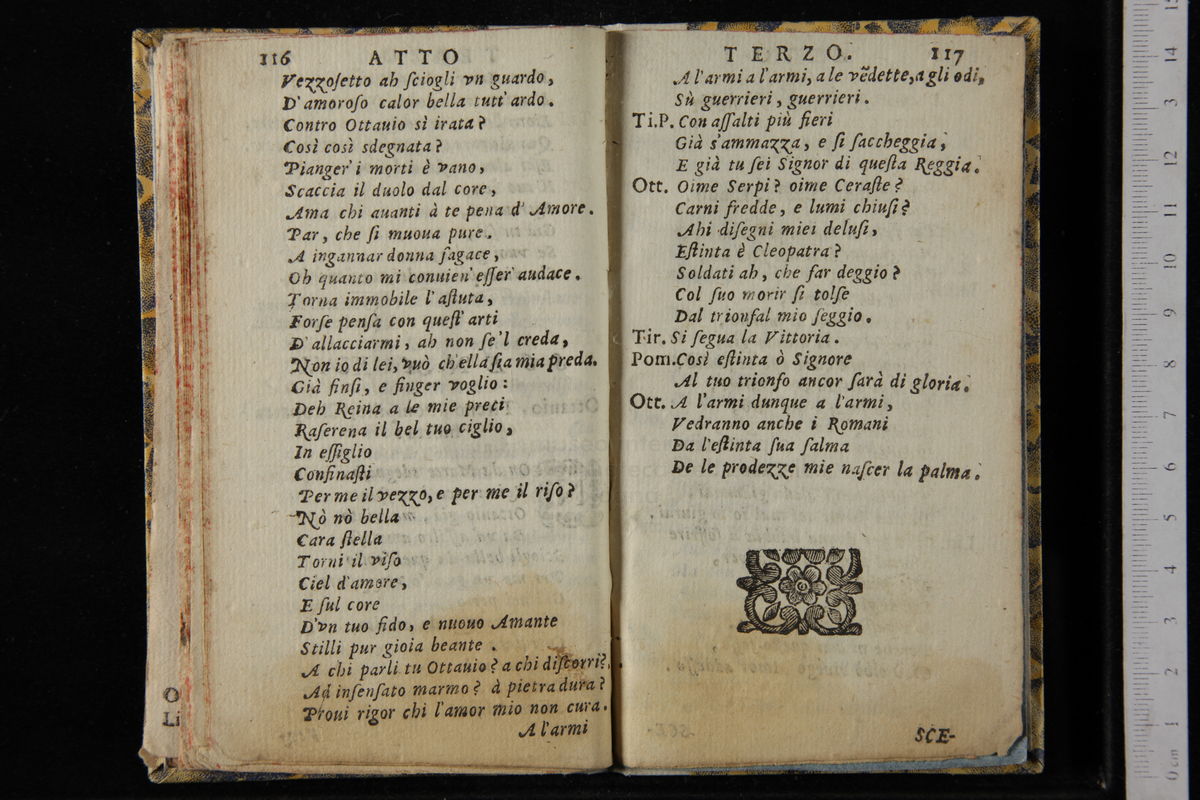 116 ATTO
Vezzoſetto ah ſciogli vn guardo,
D'amoroſo calor bella tutt'ardo.
Contro Ottauio sì irata?
Così così sdegnata?
Pianger' i morti è vano,
Scaccia il duolo dal core,
Ama chi auanti à te pena d'Amore.
Par, che ſi muoua pure.
A ingannar donna ſagace,
Oh quanto mi conuien' eſſer' audace.
Torna immobile l'aſtuta,
Forſe penſa con queſt' arti
D'allacciarmi, ah non ſe'l creda,
Non io di lei, vuò ch'ella ſia mia preda.
Già finſi, e finger voglio:
Deh Reina a le mie preci
Raſerena il bel tuo ciglio,
In eſſiglio
Confinaſti
Per me il vezzo, e per me il riſo?
Nò nò bella
Cara ſtella
Torni il viſo
Ciel d'amore,
E ſul core
D'vn tuo fido, e nuouo Amante
Stilli pur gioia beante.
A chi parli tu Ottauio? a chi diſcorri?
Ad inſenſato marmo? à pietra dura?
Proui rigor chi l'amor mio non cura.
A l'armi
TERZO. 117
A l'armi a l'armi, a le vẽdette, a gli odi,
Sù guerrieri, guerrieri.
Ti.P. Con aſſalti più fieri
Già s'ammazza, e ſi ſaccheggia,
E già tu ſei Signor di queſta Reggia.
Ott. Oime Serpi? oime Ceraſte?
Carni fredde, e lumi chiuſi?
Ahi diſegni miei deluſi,
Eſtinta è Cleopatra?
Soldati ah, che far deggio?
Col ſuo morir ſi tolſe
Dal trionfal mio ſeggio.
Tir. Si ſegua la Vittoria.
Pom. Così eſtinta ò Signore
Al tuo trionfo ancor ſarà di gloria.
Ott. A l'armi dunque a l'armi,
Vedranno anche i Romani
Da l'eſtinta ſua ſalma
De le prodezze mie naſcer la palma.
SCE-